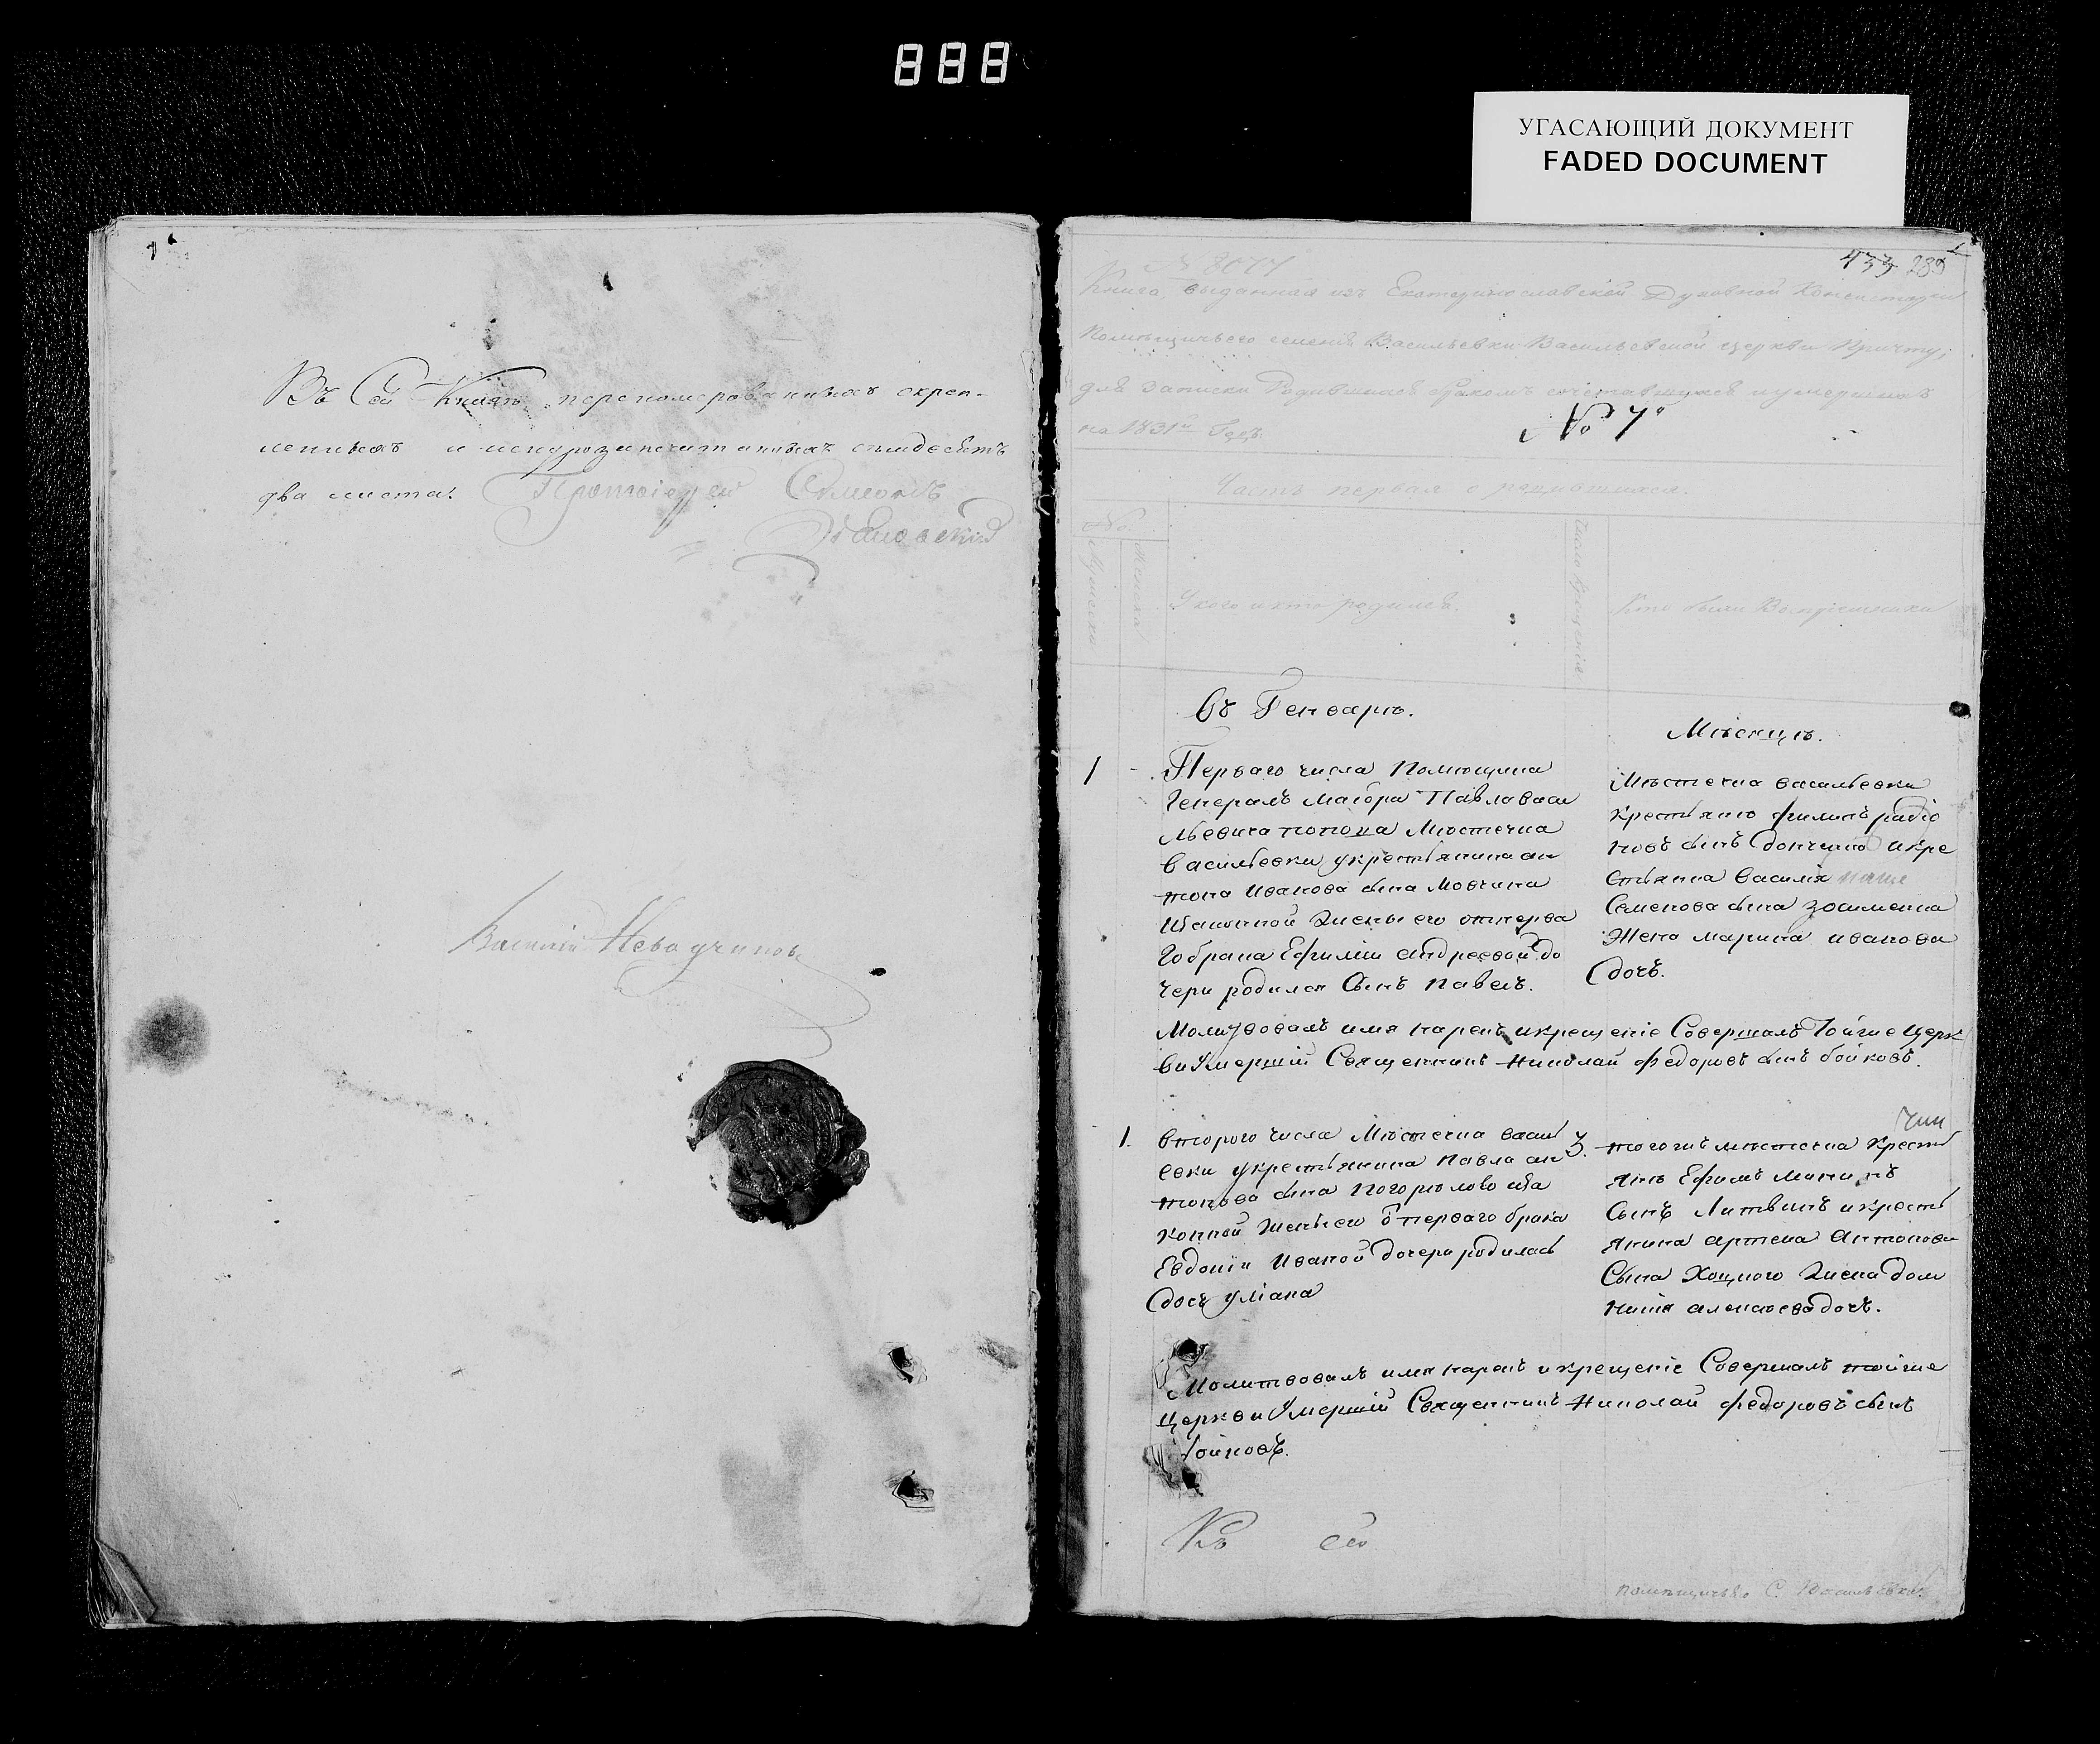 888
УГАСАЮЩИЙ ДОКУМЕНТ
FADED DOCUMENT
Въ Сей Книгѣ перенумерованныхъ скреп-
ленныхъ и семдесятъ
два листа. Протоіерей Симеонъ
433 285
Книга, выданная изъ Екатеринославской Духовной Консисторіи
Помѣщичьего селенія Васильевки Васильевской церкви Причту,
для записки Родившихся бракомъ сочетавшихся и умершихъ
на 1831й Годъ.
№ 7й
Часть первая о родившихся.
№
Мужеска
Женска
У кого и кто родился.
Числа Крещенія
Кто были Воспріемники
въ Генварѣ.
Мѣсяцѣ.
1
Перваго числа Помѣщика
Генералъ маіора Павла Васи
льевича попова Мѣстечка
васильевки у крестьянина ан
тона Иванова сына Мовчана
Изаконной жены его отперва
го брака Ефиміи андреевой до
чери родился Сынъ павелъ.
Мѣстечка васильевки
крестьянъ филипъ радіо
новъ сынъ и кре
стьянина василія
Семенова сына
Жена марина иванова
дочь.
Молитвовалъ имя нарекъ и крещеніе Совершалъ Тойже Церк
ви Умершій Священникъ Николай федоровъ сынъ бойковъ.
1.
второго числа Мѣстечка васил
евки у крестьянина павла ан
тонова сына погорѣлово иза
конной жены его отперваго брака
Евдокіи Ивановой дочери родилась
дочь уліана
3.
тогожъ мѣстечка кресть
янъ Ефимъ
Сынъ Литвинъ и крестъ
янина артема Антонова
Сына жена дом
никія алексѣева дочь.
Молитвовалъ имя нарекъ и крещеніе Совершалъ тойже
Церкви Умершій Священникъ Николай федоровъ сынъ
бойковъ.
Къ сей
помѣщичьяго С. Васильевки